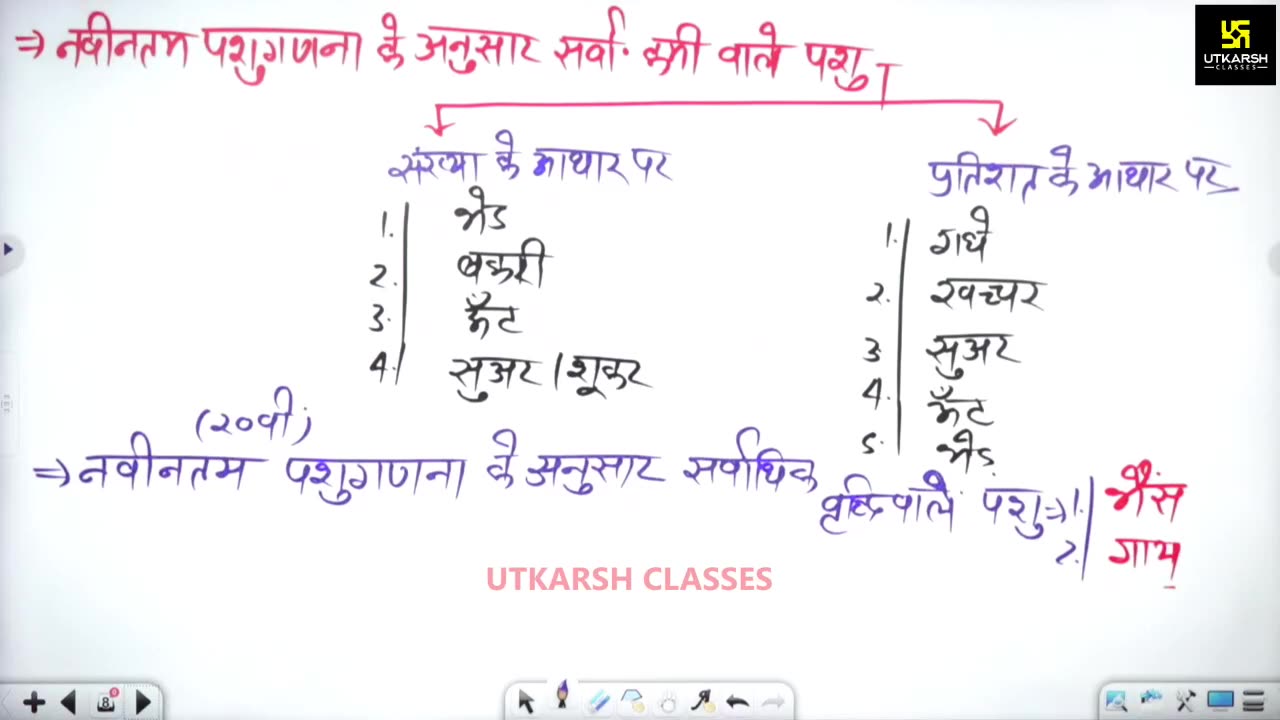 ⇒ नवीनतम पशुगणना के अनुसार सर्वा. कमी वाले पशु
UTKARSH
CLASSES
संख्या के आधार पर
1. भेड
2. बकरी
3. ऊँट
4. सुअर / शूकर
प्रतिशत के आधार पर
1. गधे
2. खच्चर
3. सुअर
4. ऊँट
5. भेड
(20वी)
⇒ नवीनतम पशुगणना के अनुसार सर्वाधिक वृद्धि वाले पशु ⇒ 1. भैंस
2. गाय
UTKARSH CLASSES
8